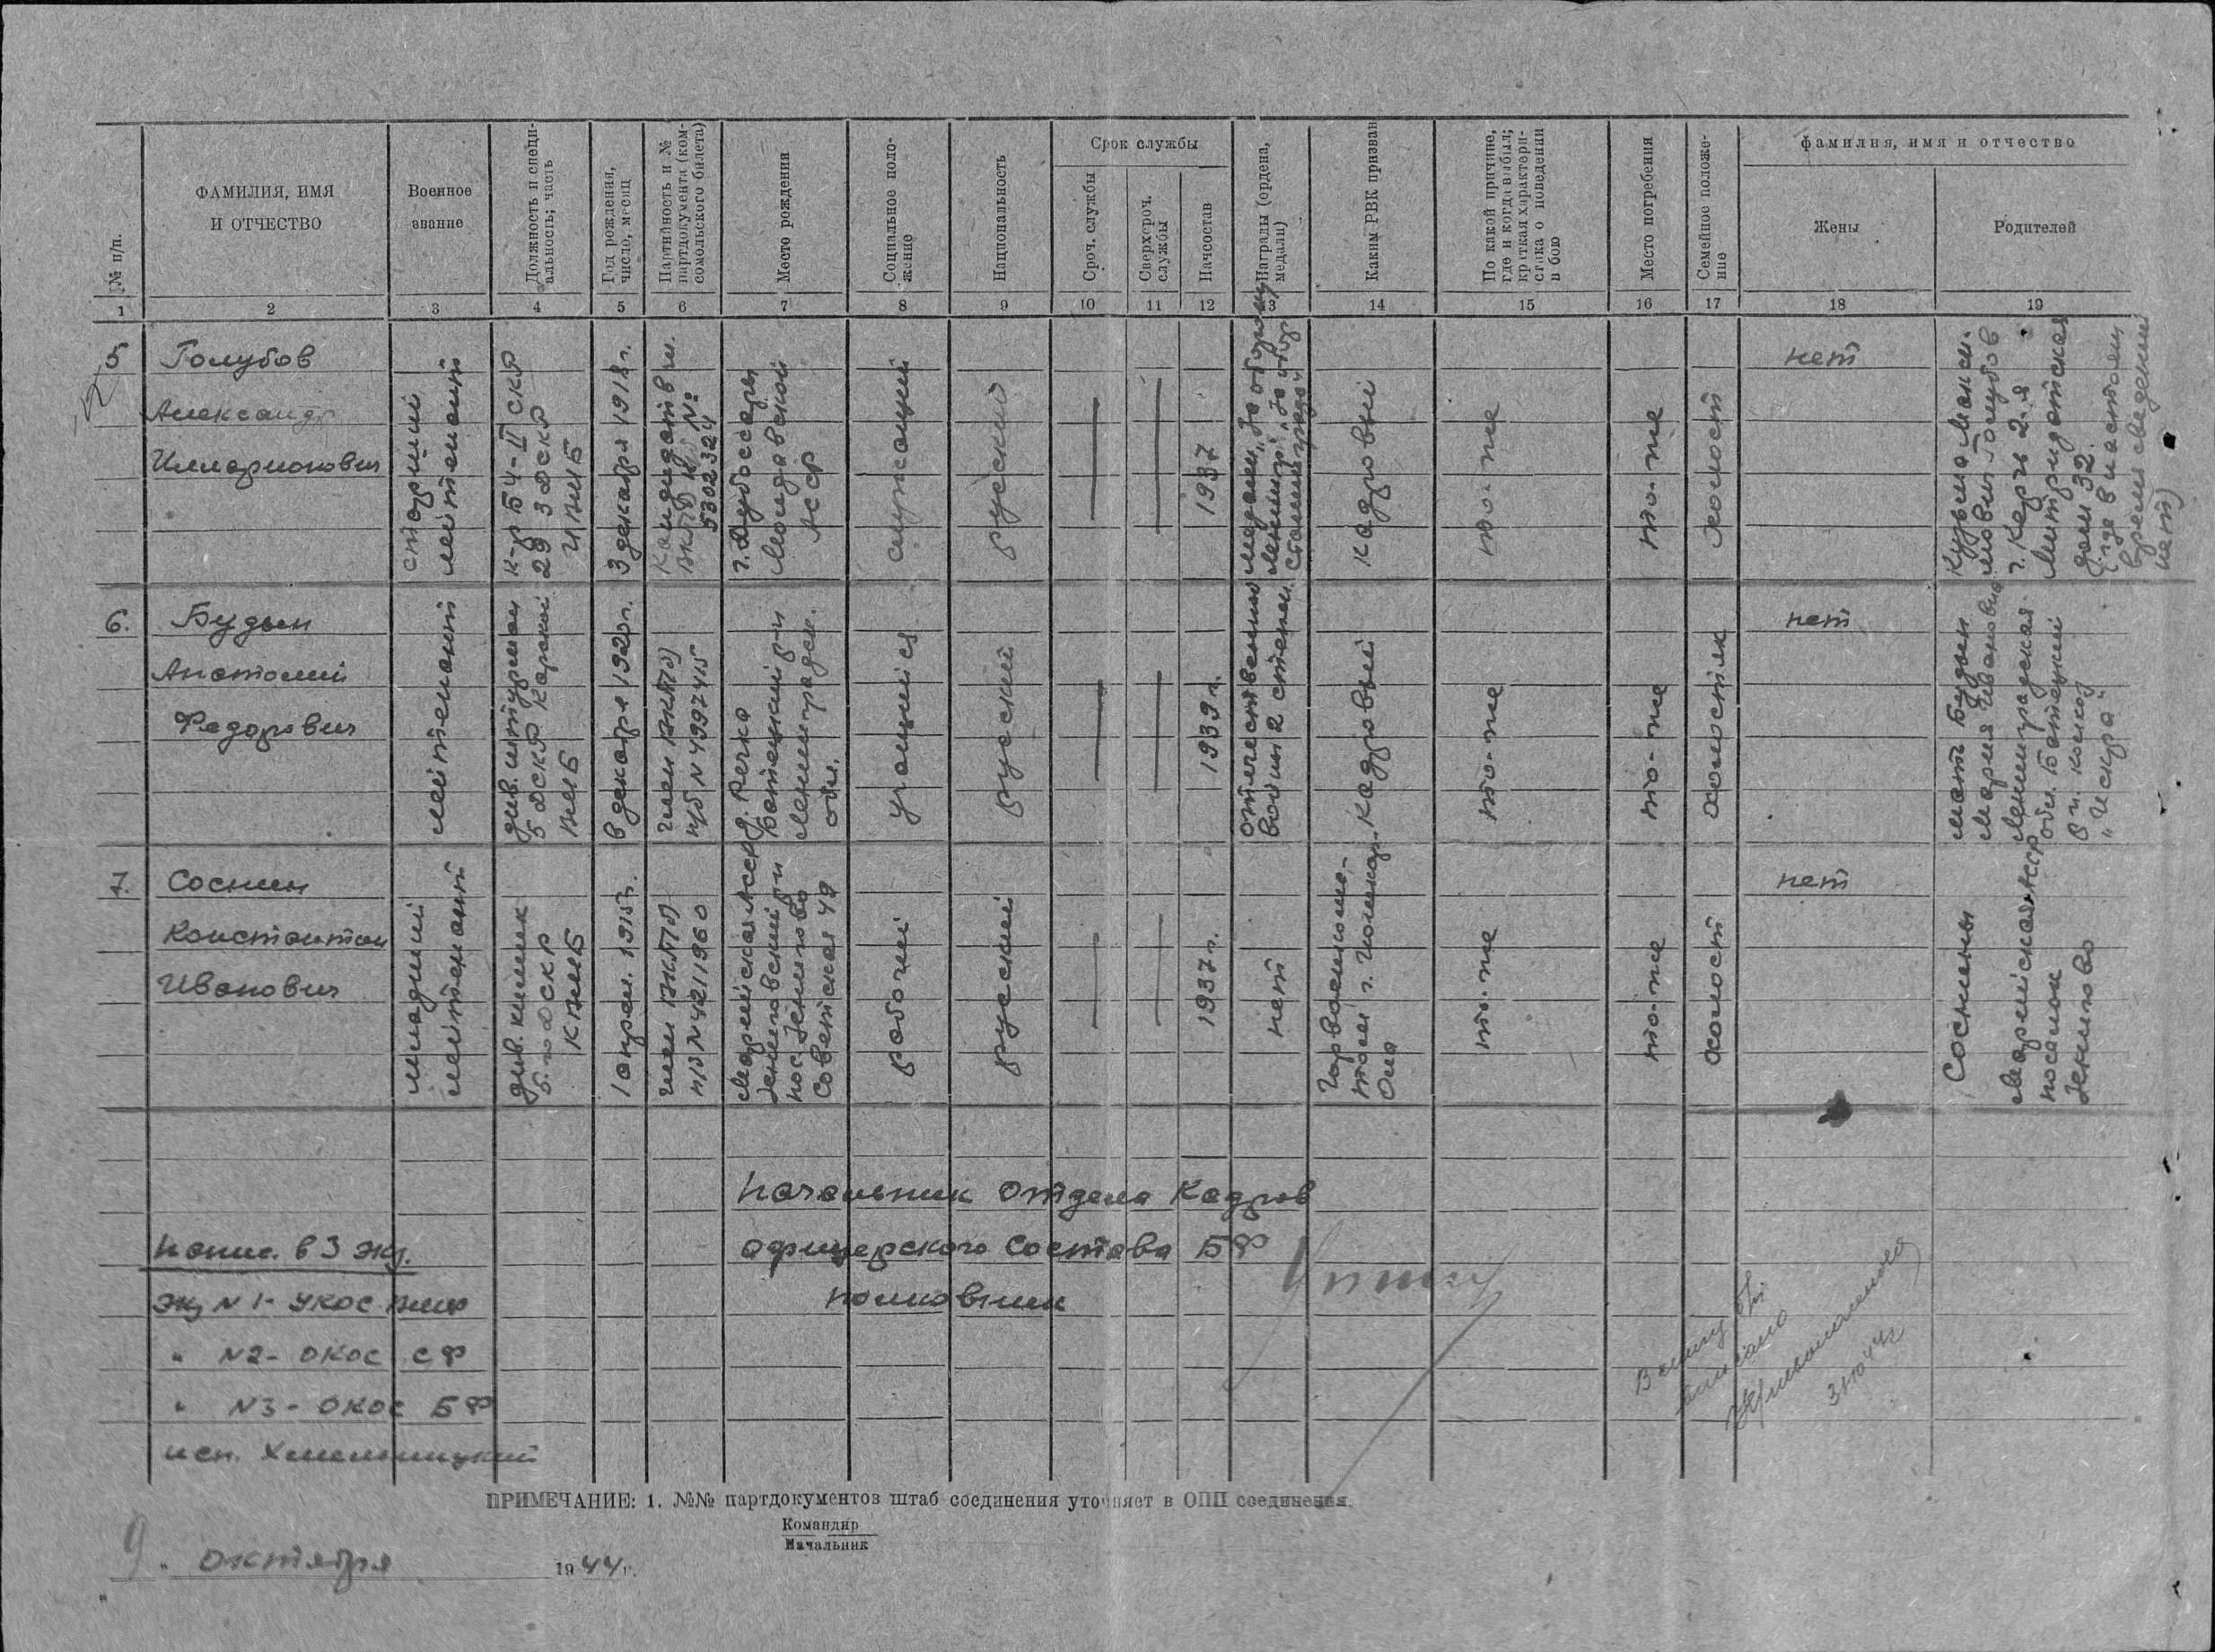 № п/п.
ФАМИЛИЯ, ИМЯ
И ОТЧЕСТВО
Военное
звание
Должность и специ-
альность; часть
Год рождения,
число, месяц
Партийность и №
партдокумента (ком-
сомольского билета)
Место рождения
Социальное поло-
жение
Национальность
Срок службы
Сроч. службы
Сверхсроч.
службы
Начсостав
Награды (ордена,
медали)
Каким РВК призван
По какой причине,
где и когда выбыл;
краткая характери-
стика о поведении
в бою
Место погребения
Семейное положе-
ние
фамилия, имя и отчество
Жены
Родителей
1 2 3 4 5 6 7 8 9 10 11 12 13 14 15 16 17 18 19
5
Голубов
Александр
Илларионович
старший
лейтенант
к-р БЧ-II СКР
29 3 ДСКР
3 декабря 1918 г.
Кандидат в чл.
ВКП(б) №
5302324
г. Дубоссары
Молдавской
АССР
служащий
русский
1937
Медали „За оборону
Ленингр.", За обор
Сталинграда
кадровый
то-же
то-же
холост
нет
Кузьма Макси-
мович Голубов
г. Керчь 2-я
Митридатская
дом 32.
(где в настоящ
время сведений
нет)
6.
Будын
Анатолий
Федорович
лейтенант
див. штурман
5 ДСКР Карской
ВМБ
8 декабря 1920 г.
член ВКП(б)
п/б N 4997415
д. Речка
Батецкий р-н
Ленинградск.
обл.
учащийся
русский
1939 г.
отечественной
войны 2 степени
кадровый
то-же
то-же
холостяк
нет
мать Будын
Мария Ивановна
Ленинградская
обл. Батецкий
р-н. колхоз
„Искра"
7.
Соснин
Константин
Иванович
младший
лейтенант
див. химик
5-го ДСКР
КВМБ
1 апрел. 1915 г.
член ВКП(б)
п/б N 4211960
Марийская АССР
Звениговский р-н
пос. Звенигово
Советская 49
рабочий
русский
1937 г.
нет
Горвоенкома-
том г. Йошкар-
Ола
то-же
то-же
холост
нет
Соснины
Марийская АССР
поселок
Звенигово
Начальник отдела Кадров
офицерского состава БФ
полковник
напис. в 3 экз.
экз N 1- УКОС ВМФ
" N2- ОКОС СФ
" N3- ОКОС БФ
исп. Хмельницкий
В книгу
31/10 44г
ПРИМЕЧАНИЕ: 1. №№ партдокументов штаб соединения уточняет в ОПП соединения.
Командир
Начальник
9. октября 1944 г.